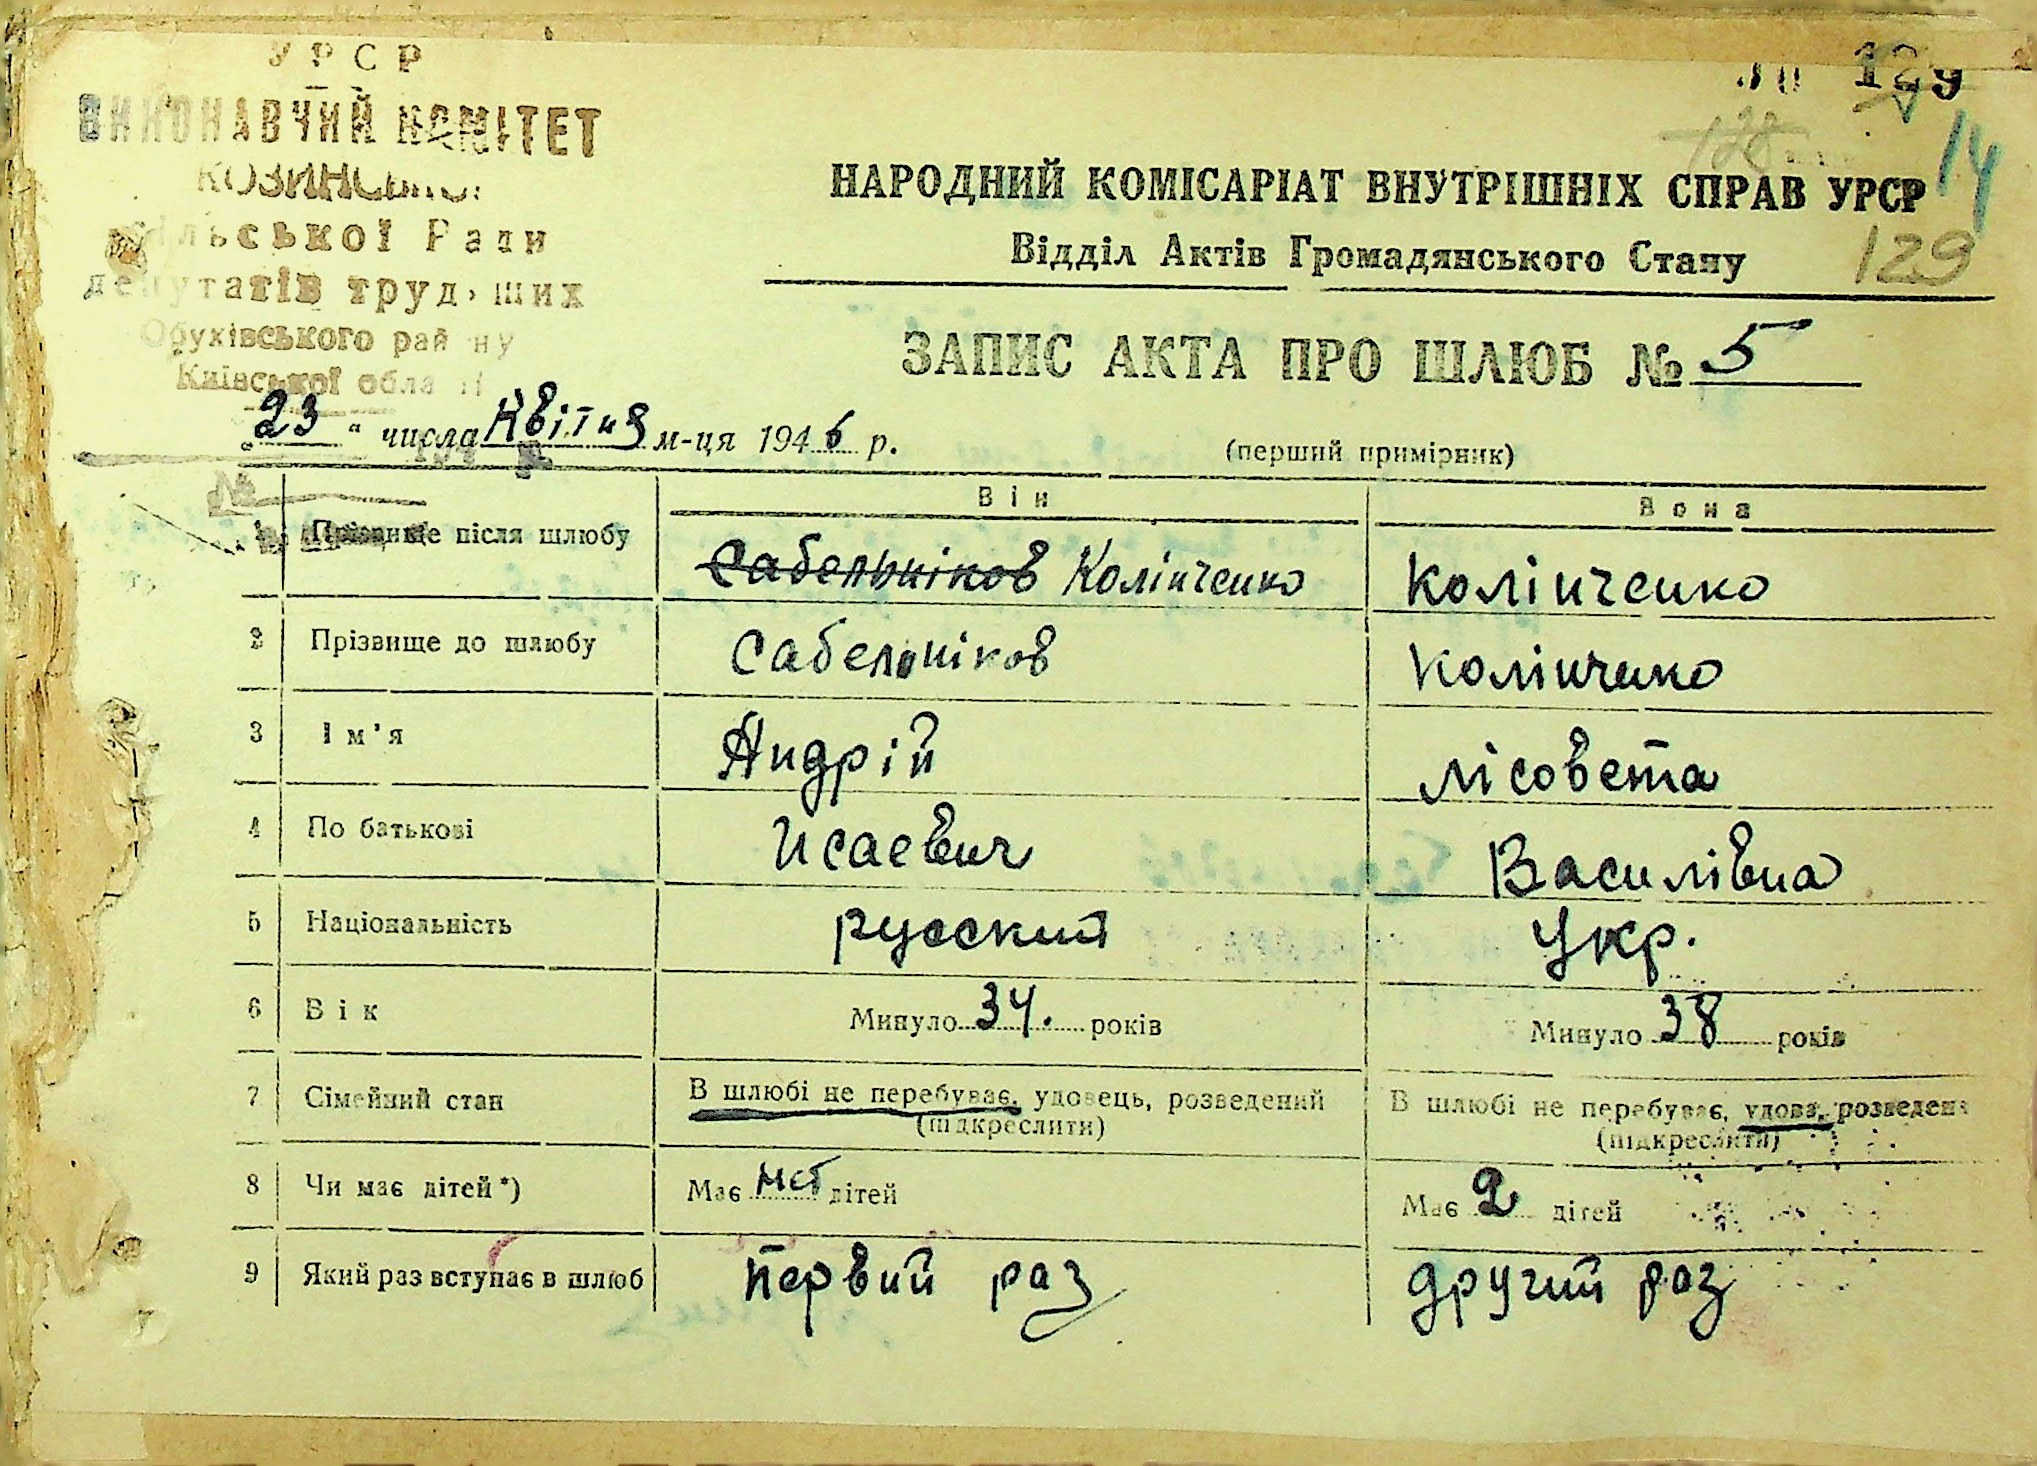 УРСР
ВИКОНАВЧИЙ КОМІТЕТ
КОЗИНСЬКОЇ
сільської Ради
депутатів трудящих
Обухівського району
Київської області
129
128
14
НАРОДНИЙ КОМІСАРІАТ ВНУТРІШНІХ СПРАВ УРСР
Відділ Актів Громадянського Стану
129
ЗАПИС АКТА ПРО ШЛЮБ № 5
„23“ числа Квітня м-ця 1946 р.
(перший примірник)
194 р
№
Він Вона
1 Прізвище після шлюбу Сабельніков Колінченко Колінченко
2 Прізвище до шлюбу Сабельніков Колінченко
3 Ім'я Андрій Лісовета
4 По батькові Исаевич Василівна
5 Національність русский Укр.
6 Вік Минуло 34. років Минуло 38 років
7 Сімейний стан В шлюбі не перебуває, удовець, розведений В шлюбі не перебуває, удова, розведена
(підкреслити) (підкреслити)
8 Чи має дітей*) Має нет дітей Має 2 дітей
9 Який раз вступає в шлюб Первий раз другий раз